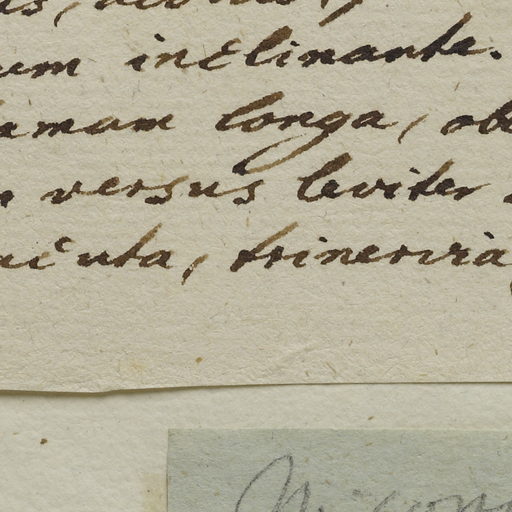 um inclinante.
amam longa, ob
versus leviter
acuta, trinervia